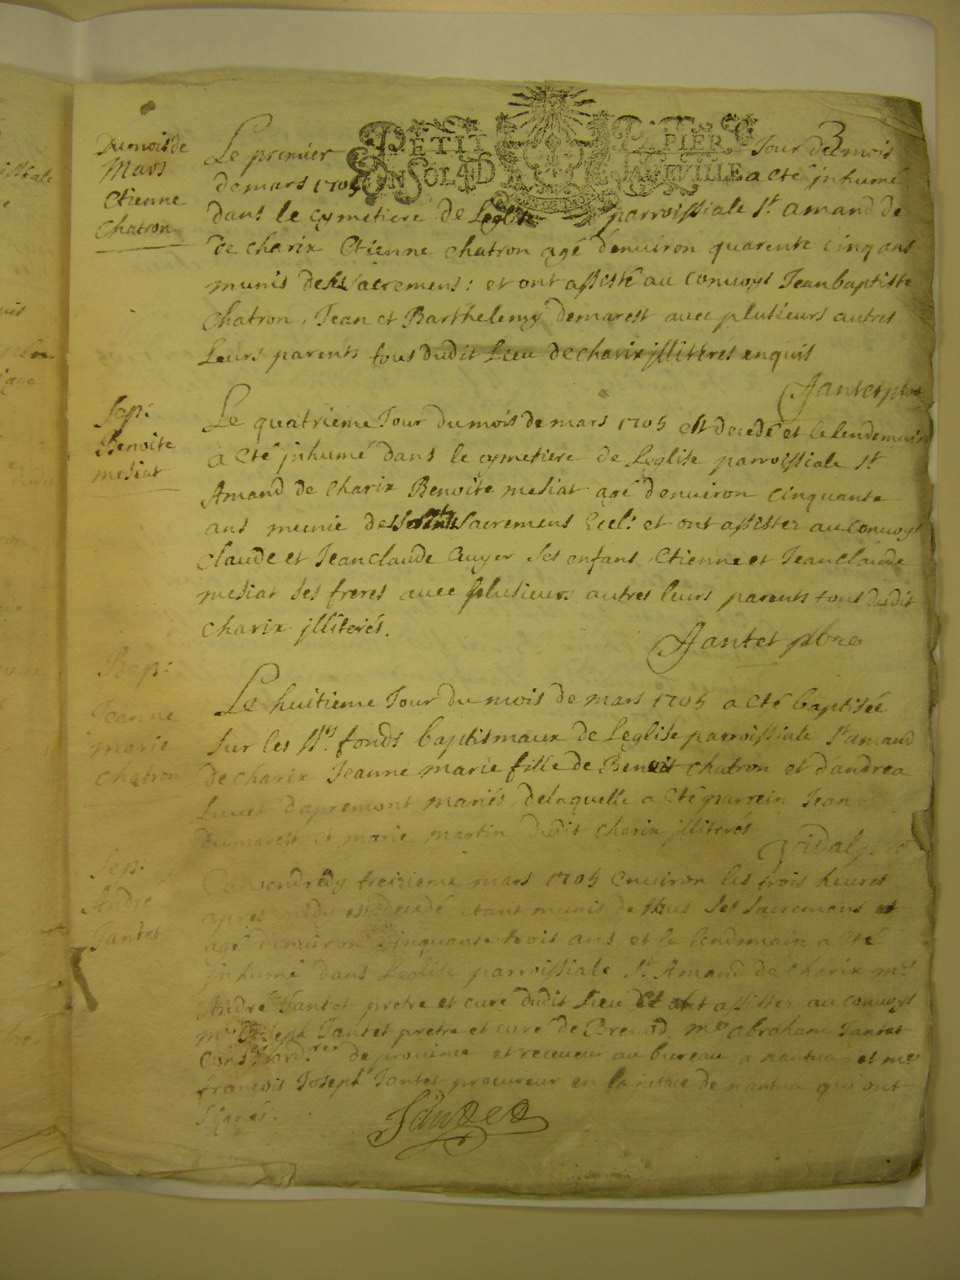 Du mois de
Mars
Etienne
Chatron
PETIT PAPIER
UN SOL LA FEVILLE
Le premier Jour du mois
de mars 1705 a eté jnhumé
dans le cymetiere de Leglise parroissiale St amand de
de charix Etienne chatron agé denviron quarente cinq ans
munis des sacremens: et ont assisté au convoys Jean baptiste
chatron, Jean et Barthelemy demarest avec plusieurs autres
Leurs parents tous dudit Lieu de charix jlliterés enquis
Jantet pbre
Sep:
Benoite
mesiat
Le quatrieme Jour du mois de mars 1705 est decedé et le lendemain
a eté jnhumé dans le cymetiere de Leglise parroissiale St
Amand de charix Benoite mesiat agé denviron cinquante
ans munie des sacremens Eccl: et ont assister au convoys
claude et Jean claude Cuyer ses enfans, Etienne et Jean claude
mesiat ses freres avec plusieurs autres leurs parents tous dudit
charix jlliterés.
Jantet pbre
Bap:
Jeanne
marie
chatron
Le huitieme Jour du mois de mars 1705 a eté baptisée
sur les Sts fonds baptismaux de Leglise parroissiale St amand
de charix Jeanne marie fille de Benoit chatron et dandrea
dapremont mariés, de laquelle a eté parrein Jean
dumarest et marie martin dudit charix jlliterés
Vidal
Sep:
André
Jantet
vendredy treizieme mars 1705 environ les trois heures
apres midy est decedé etant munis de tous ses sacremens et
agé denviron cinquante trois ans et le lendemain a eté
jnhumé dans Leglise parroissiale St Amand de charix mre
André Jantet pretre et curé dudit Lieu et ont assister au convoys
mre Joseph Jantet pretre et curé de Brenod, mre abraham Jantet
de province et receveur au bureau a nantua et mre
francois Joseph Jantet procureur en la justice de nantua qui ont
signés.
Jantet